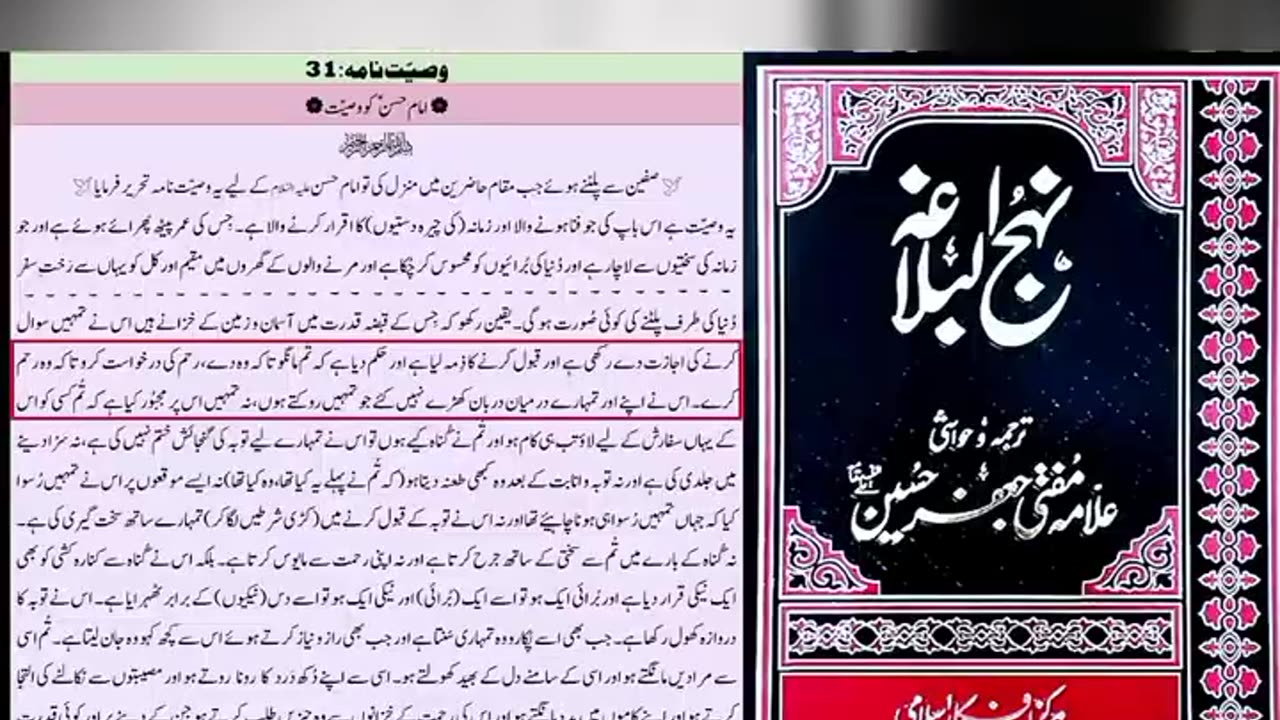 وصیّت نامہ:31
امام حسنؑ کو وصیّت
صفین سے پلٹتے ہوئے جب مقام حاضرین میں منزل کی تو امام حسن علیہ السلام کے لیے یہ وصیّت نامہ تحریر فرمایا
یہ وصیّت ہے اس باپ کی جو فنا ہونے والا اور زمانہ (کی چیرہ دستیوں) کا اقرار کرنے والا ہے۔ جس کی عمر پیٹھ پھرائے ہوئے ہے اور جو
زمانہ کی سختیوں سے لاچار ہے اور دُنیا کی بُرائیوں کو محسوس کر چکا ہے اور مرنے والوں کے گھروں میں مقیم اور کل کو یہاں سے رَختِ سفر
دُنیا کی طرف پلٹنے کی کوئی صورت ہو گی۔ یقین رکھو کہ جس کے قبضہ قدرت میں آسمان و زمین کے خزانے ہیں اس نے تمہیں سوال
کرنے کی اجازت دے رکھی ہے اور قبول کرنے کا ذمہ لیا ہے اور حکم دیا ہے کہ تم مانگو تا کہ وہ دے، رحم کی درخواست کرو تا کہ وہ رحم
کرے۔ اس نے اپنے اور تمہارے درمیان دربان کھڑے نہیں کئے جو تمہیں روکتے ہوں، نہ تمہیں اس پر مجبور کیا ہے کہ تُم کسی کو اس
کے یہاں سفارش کے لیے لاؤ تب ہی کام ہو اور تُم نے گناہ کیے ہوں تو اس نے تمہارے لیے توبہ کی گنجائش ختم نہیں کی ہے، نہ سزا دینے
میں جلدی کی ہے اور نہ توبہ و انابت کے بعد وہ کبھی طعنہ دیتا ہو (کہ تُم نے پہلے یہ کیا تھا، وہ کیا تھا) نہ ایسے موقعوں پر اس نے تمہیں رُسوا
کیا کہ جہاں تمہیں رُسوا ہی ہونا چاہیئے تھا اور نہ اس نے توبہ کے قبول کرنے میں (کڑی شرطیں لگا کر) تمہارے ساتھ سخت گیری کی ہے۔
نہ گناہ کے بارے میں تُم سے سختی کے ساتھ جرح کرتا ہے اور نہ اپنی رحمت سے مایوس کرتا ہے۔ بلکہ اس نے گناہ سے کنارہ کشی کو بھی
ایک نیکی قرار دیا ہے اور بُرائی ایک ہو تو اسے ایک (بُرائی) اور نیکی ایک ہو تو اسے دس (نیکیوں) کے برابر ٹھہرایا ہے۔ اس نے توبہ کا
دروازہ کھول رکھا ہے۔ جب بھی اسے پکارو وہ تمہاری سُنتا ہے اور جب بھی راز و نیاز کرتے ہوئے اس سے کچھ کہو وہ جان لیتا ہے۔ تُم اسی
سے مرادیں مانگتے ہو اور اسی کے سامنے دل کے بھید کھولتے ہو۔ اسی سے اپنے دُکھ دَرد کا رونا روتے ہو اور مصیبتوں سے نکالنے کی التجا
کرتے ہو اور اپنے کاموں میں مدد مانگتے ہو اور اس کی رحمت کے خزانوں سے وہ چیزیں طلب کرتے ہو جن کے دینے پر اور کوئی قدرت
نہج البلاغہ
ترجمہ و حواشی
علامہ مفتی جعفر حسین
مرکز افکار اسلامی